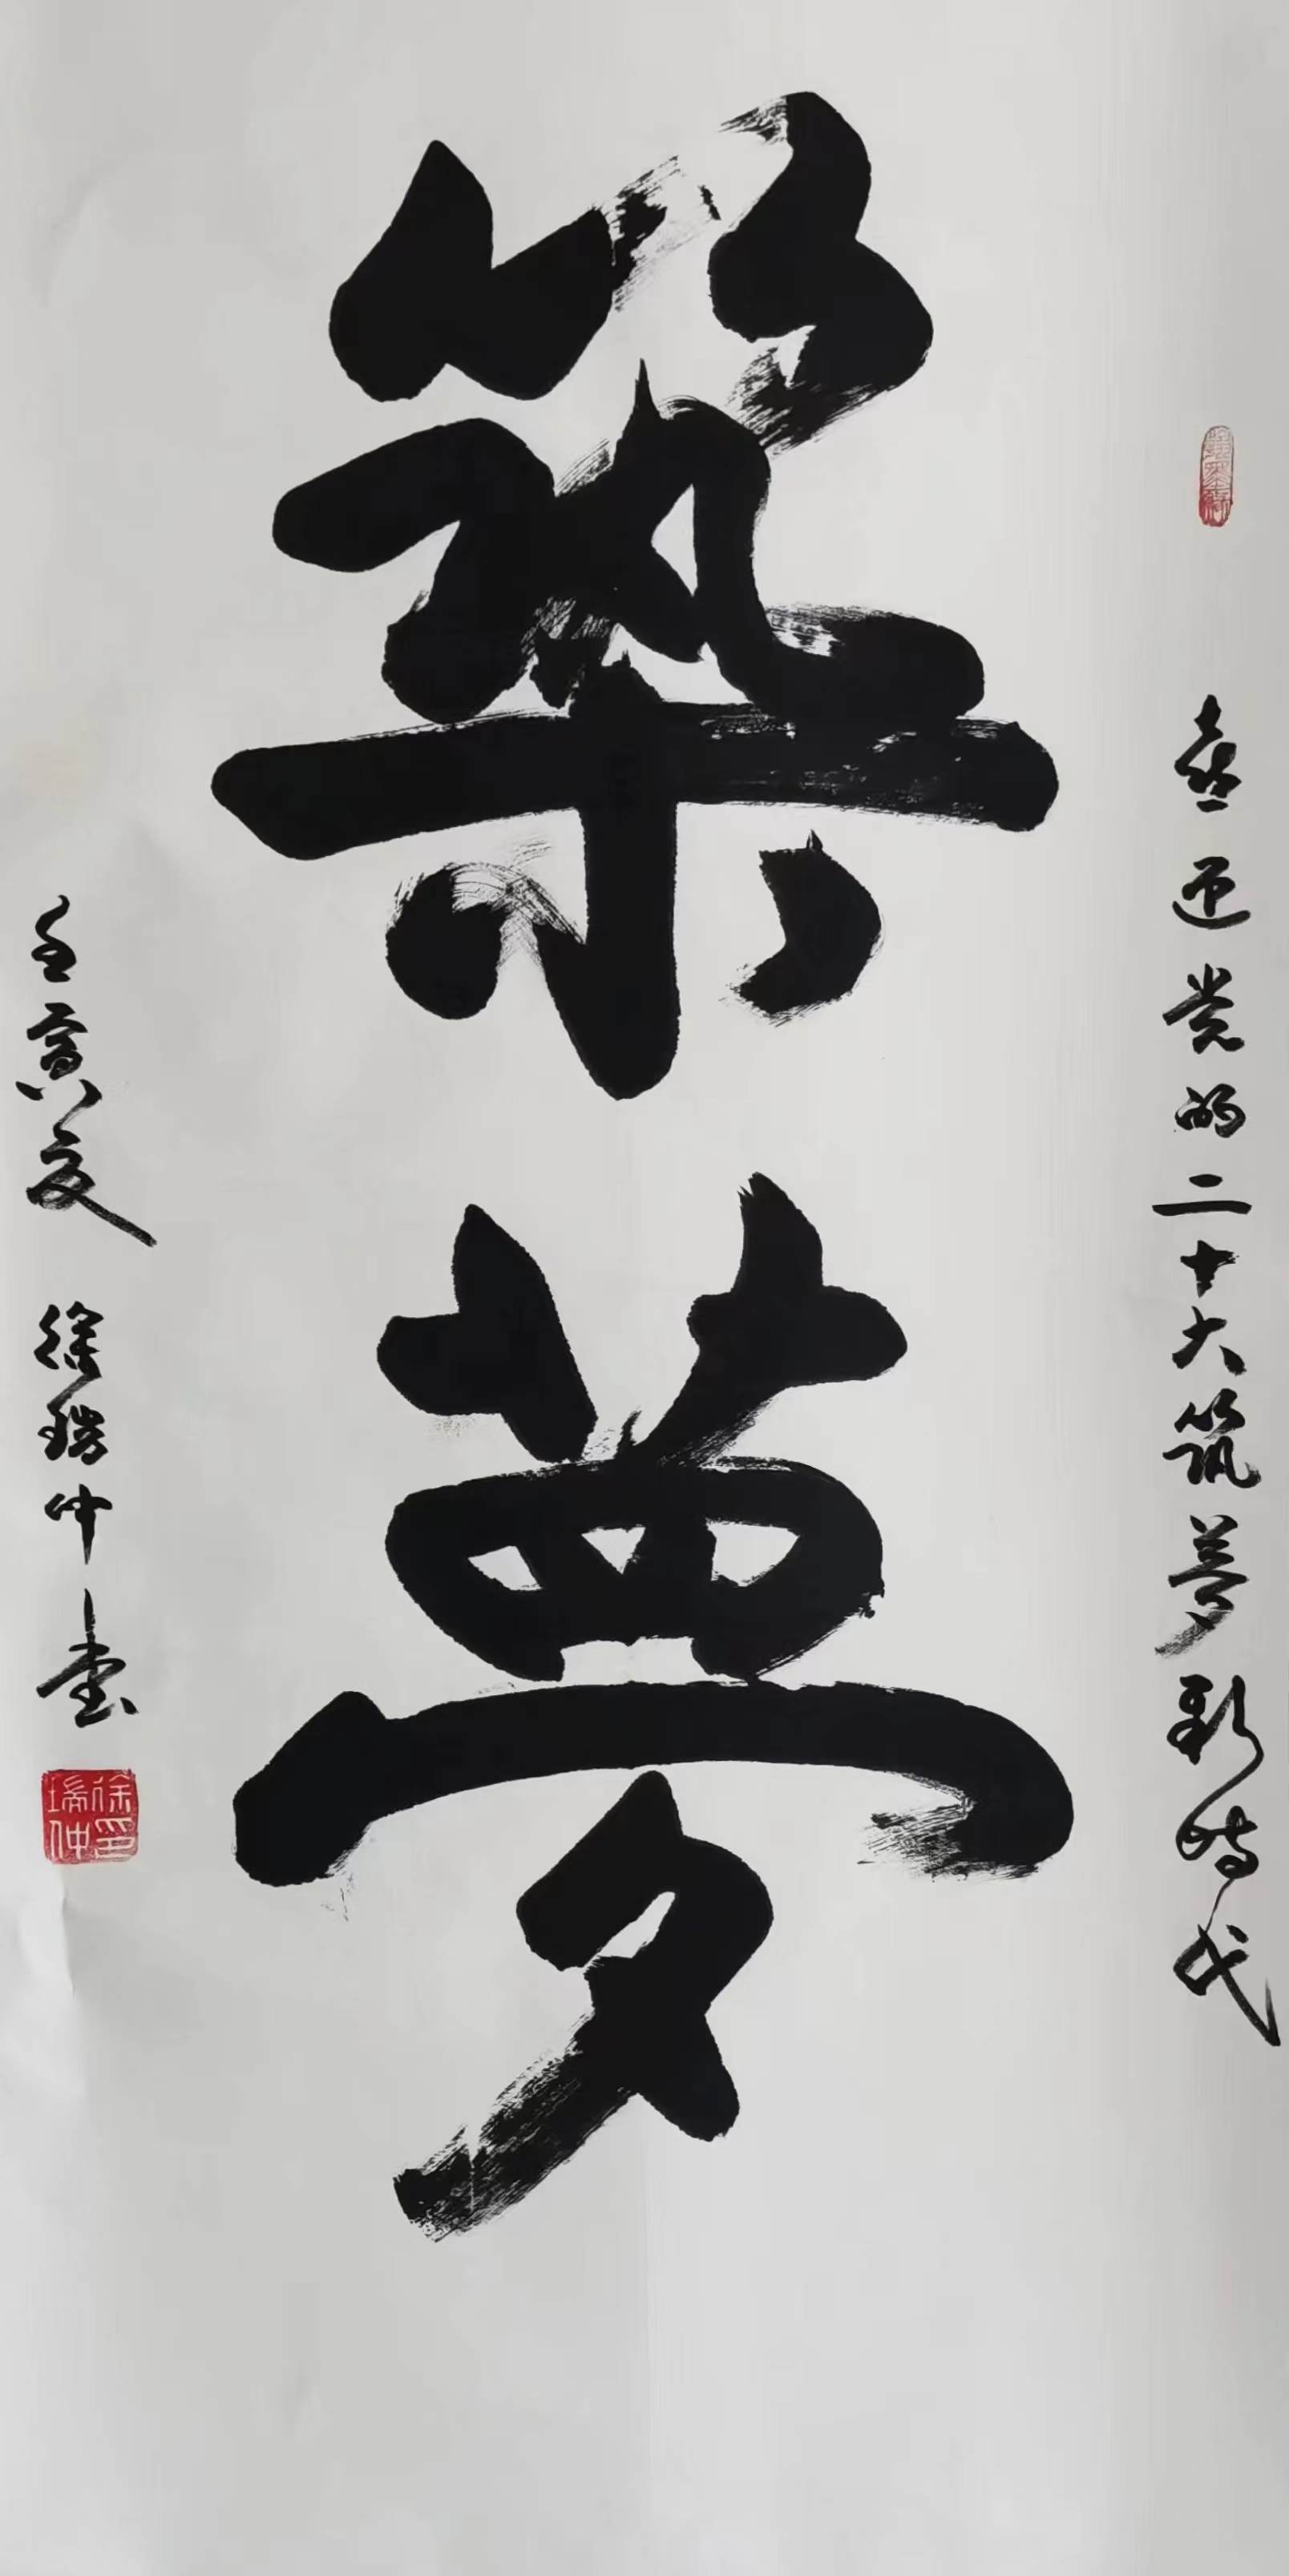 喜迎党的二十大筑梦新时代
築夢
壬寅夏 徐瑞仲書
徐瑞仲印